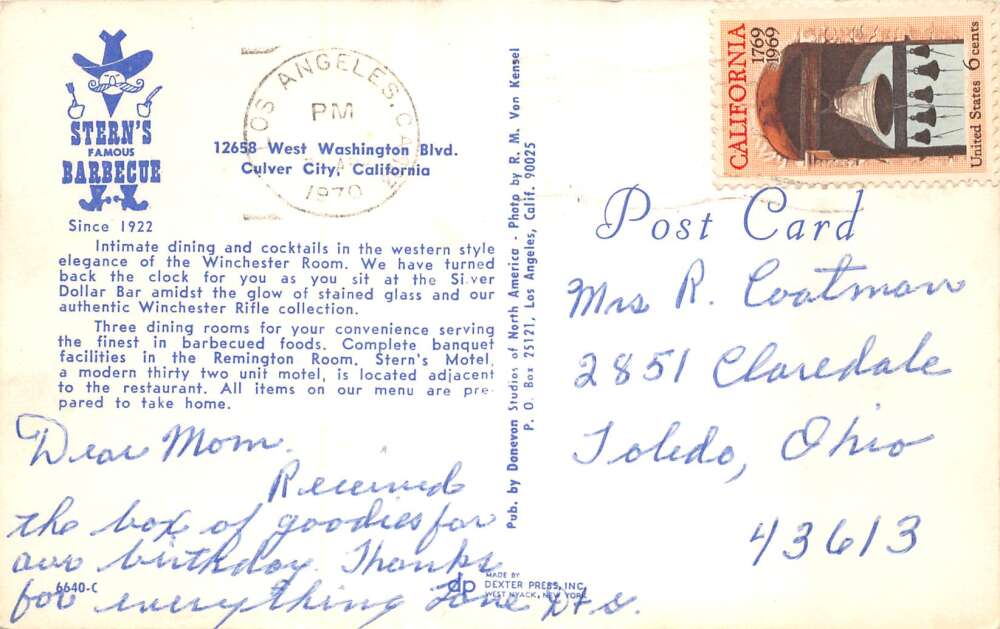 STERN'S
FAMOUS
BARBECUE
Since 1922
12658 West Washington Blvd.
Culver City, California
LOS ANGELES, CA
PM
1970
CALIFORNIA
1769
1969
United States 6 cents
Intimate dining and cocktails in the western style
elegance of the Winchester Room. We have turned
back the clock for you as you sit at the Silver
Dollar Bar amidst the glow of stained glass and our
authentic Winchester Rifle collection.
Three dining rooms for your convenience serving
the finest in barbecued foods. Complete banquet
facilities in the Remington Room. Stern's Motel,
a modern thirty two unit motel, is located adjacent
to the restaurant. All items on our menu are pre-
pared to take home.
Dear Mom.
Received
the box of goodies for
our birthday. Thanks
for everything Love
6640-C
dp
MADE BY
DEXTER PRESS, INC.
WEST NYACK, NEW YORK
Pub. by Donevon Studios of North America - Photo by R. M. Von Kensel
P. O. Box 25121, Los Angeles, Calif. 90025
Post Card
Mrs R. Coatman
2851 Claredale
Toledo, Ohio
43613